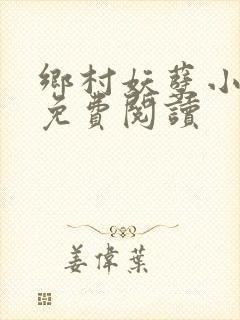 鄉村妖孽小
免費閱讀
姜偉葉